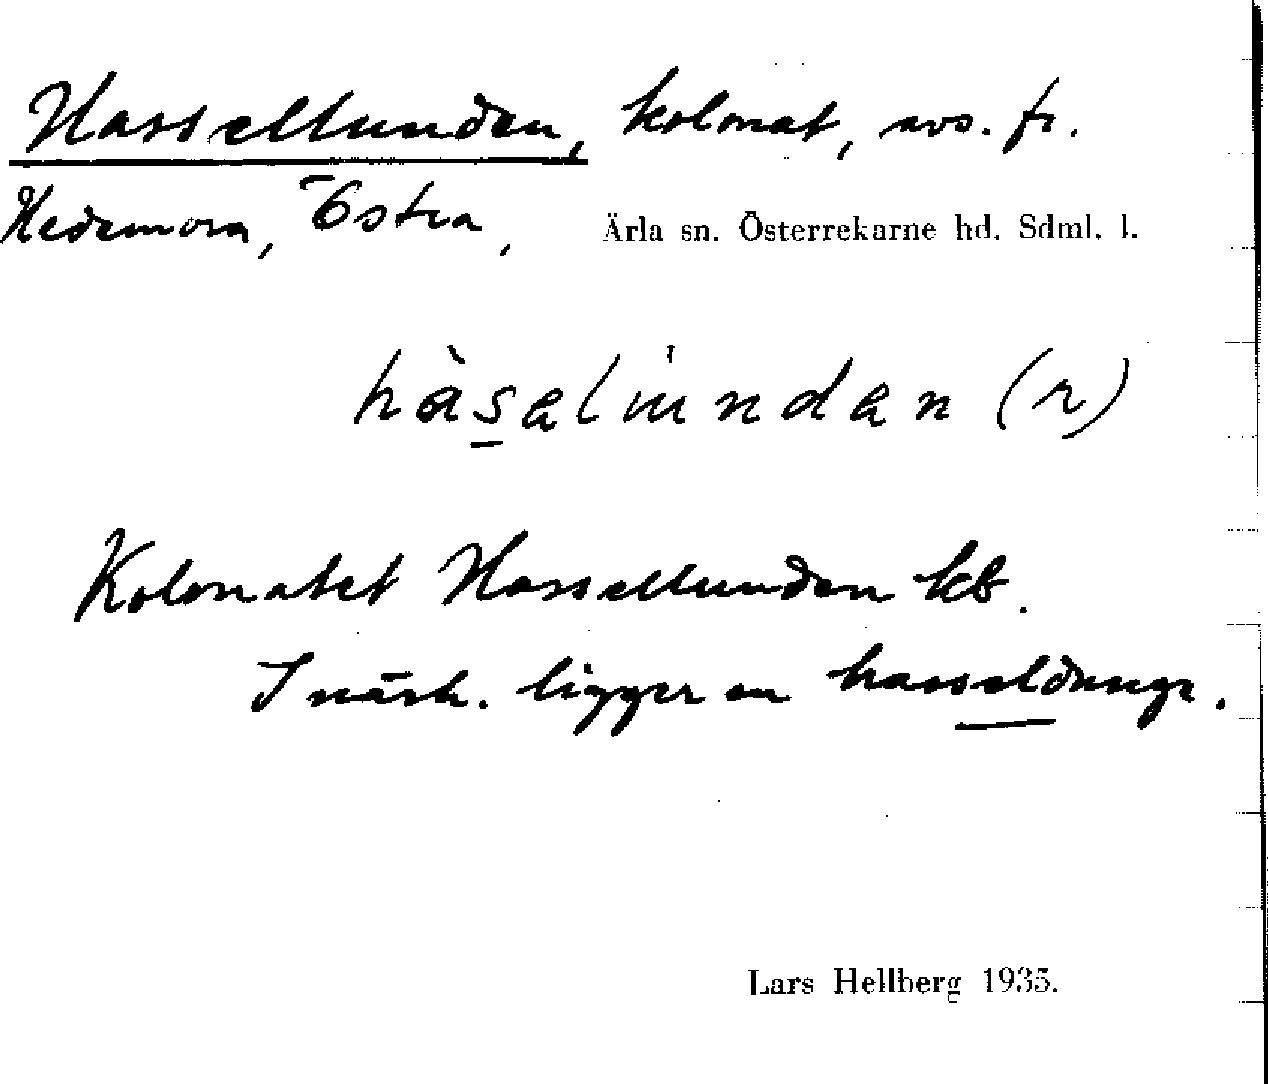 Hassellunden, kolonat, avs. fr.
Hedemora, Östra, Ärla sn. Österrekarne hd. Sdml. l.
hàsəlündən (r)
Kolonatet Hassellunden kb.
I närh. ligger en hasseldunge.
Lars Hellberg 1935.